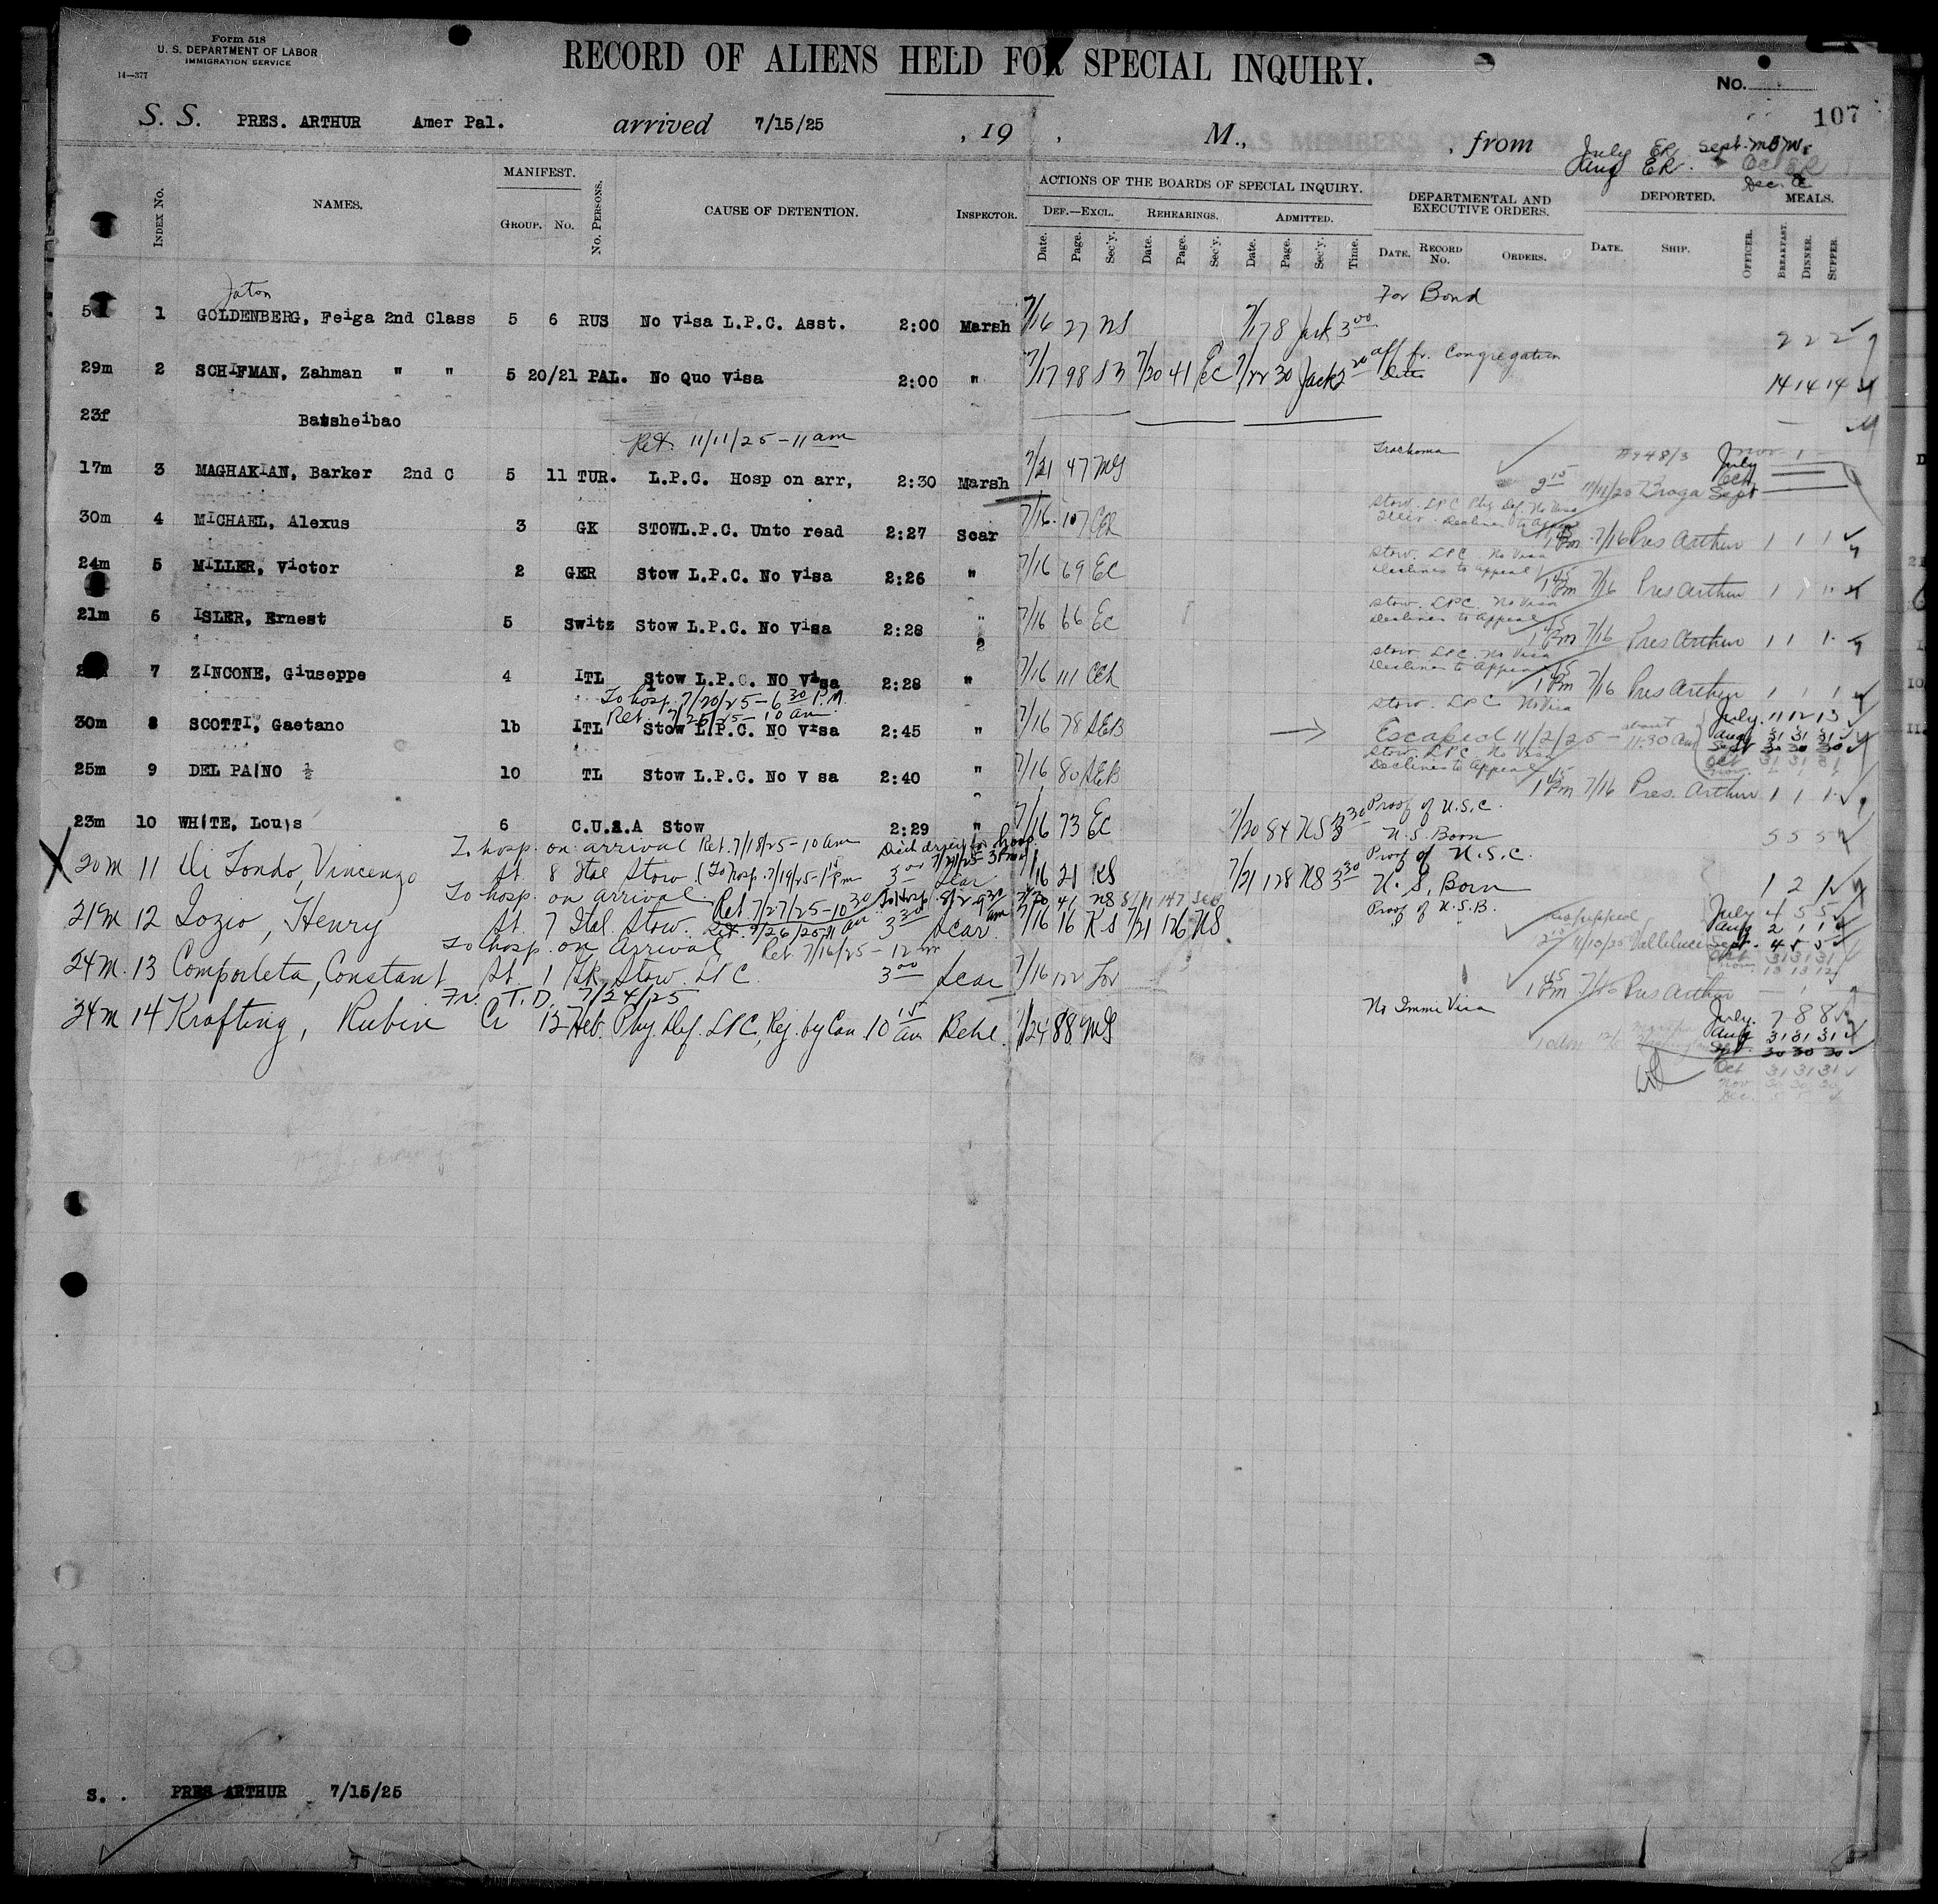 Form 518
U. S. DEPARTMENT OF LABOR
IMMIGRATION SERVICE
14—377
RECORD OF ALIENS HELD FOR SPECIAL INQUIRY.
No.
107
S. S. PRES. ARTHUR Amer Pal. arrived 7/15/25 , 19 , M., , from
July ER Sept.
Aug ER.
Dec.
INDEX No. NAMES. MANIFEST. GROUP. No. No. PERSONS. CAUSE OF DETENTION. INSPECTOR. ACTIONS OF THE BOARDS OF SPECIAL INQUIRY. DEPARTMENTAL AND EXECUTIVE ORDERS. DEPORTED. MEALS.
DEF.—EXCL. REHEARINGS. ADMITTED.
Date. Page. Sec'y. Date. Page. Sec'y. Date. Page. Sec'y. Time. DATE. RECORD No. ORDERS. DATE. SHIP. OFFICER. BREAKFAST. DINNER. SUPPER.
Jaton For Bond
1 GOLDENBERG, Feiga 2nd Class 5 6 RUS No Visa L.P.C. Asst. 2:00 Marsh 7/16 27 NS 7/17 8 Jack 3 00 2 2 2
aff fr. Congregation
29m 2 SCHIFMAN, Zahman " " 5 20/21 PAL. No Quo Visa 2:00 " 7/17 98 7/20 41 EC 7/22 30 Jack Ditto 14 14 14
23f Batsheibao
Ret. 11/11/25 - 11 am
Trachoma
17m 3 MAGHAKIAN, Barker 2nd C 5 11 TUR. L.P.C. Hosp on arr, 2:30 Marsh 7/21 47 MG 2 15 Braga July Oct Sept
Stow. LPC Phy Def. No Visa
Declines to Appeal
30m 4 MICHAEL, Alexus 3 GK STOWL.P.C. Unto read 2:27 Scar 7/16 107 CCH 7/16 Pres Arthur 1 1 1
Stow. LPC No Visa
Declines to Appeal
24m 5 MILLER, Victor 2 GER Stow L.P.C. No Visa 2:26 " 7/16 69 EC 1 45 Pm 7/16 Pres Arthur 1 1 1
Stow. LPC. No Visa
Declines to Appeal
21m 6 ISLER, Ernest 5 Switz Stow L.P.C. No Visa 2:28 " 7/16 66 EC 1 45 Pm 7/16 Pres Arthur 1 1 1
Stow. LPC. No Visa
Declines to Appeal
7 ZINCONE, Giuseppe 4 ITL Stow L.P.C. NO Visa 2:28 " 7/16 111 CCH 1 45 Pm 7/16 Pres Arthur 1 1 1
To hosp. 7/20/25 - 6 30 P.M.
Ret. 7/25/25 - 10 am
Stow. LPC No Visa
30m 8 SCOTTI, Gaetano 1b ITL Stow L.P.C. NO Visa 2:45 " 7/16 78 SEB Escaped 11/2/25 - about 11:30 Am
July 11 12 13
Aug 31 31 31
Sept 30 30 30
Oct 31 31 31
Stow. LPC No Visa
Declines to Appeal
25m 9 DEL PAINO ½ 10 TL Stow L.P.C. No V sa 2:40 " 7/16 80 SEB 1 45 Pm 7/16 Pres. Arthur 1 1 1
Proof of U.S.C.
23m 10 WHITE, Louis 6 C.U.S.A Stow 2:29 " 7/16 73 EC 7/20 84 NS 3 30 U.S. Born 5 5 5
To hosp. on arrival Ret. 7/18/25 - 10 am
Proof of U.S.C.
X 20m 11 Di Tondo, Vincenzo St. 8 Ital Stow (To hosp. 7/19/25 - 1 15 Pm 3 00 Scar 7/16 21 KS 7/21 128 NS 3 30 U. S. Born 1 2 1
To hosp. on arrival Ret 7/27/25 - 10 30 To Hosp. 8/2 - 9 30 am 7/30 41 NS 8/11 147 SEB
Proof of U.S.B.
21m 12 Iozio, Henry St. 7 Ital. Stow. Ret. 9/26/25 11 am 3 30 Scar 7/16 16 KS 7/21 126 NS
July 4 5 5
Aug 2 1 1
Sept. 4 5 5
Oct 31 31 31
Nov. 13 13 12
To hosp. on Arrival Ret. 7/16/25 - 12
24m. 13 Comporleta, Constant St. 1 Stow. LPC 3 00 Scar 7/16 122 For 1 45 Pm 7/16 Pres Arthur
T.D. 7/24/25
No Immi Visa
24m 14 Krafting, Rubin Cr 13 Heb. Phy. Def. LPC, Rej. by Can. 10 15 am Behl. 7/24 88 MG
July. 7 8 8
Aug 31 31 31
Spt. 30 30 30
Oct 31 31 31
Nov 30 30 30
Dec.
S. . PRES ARTHUR 7/15/25